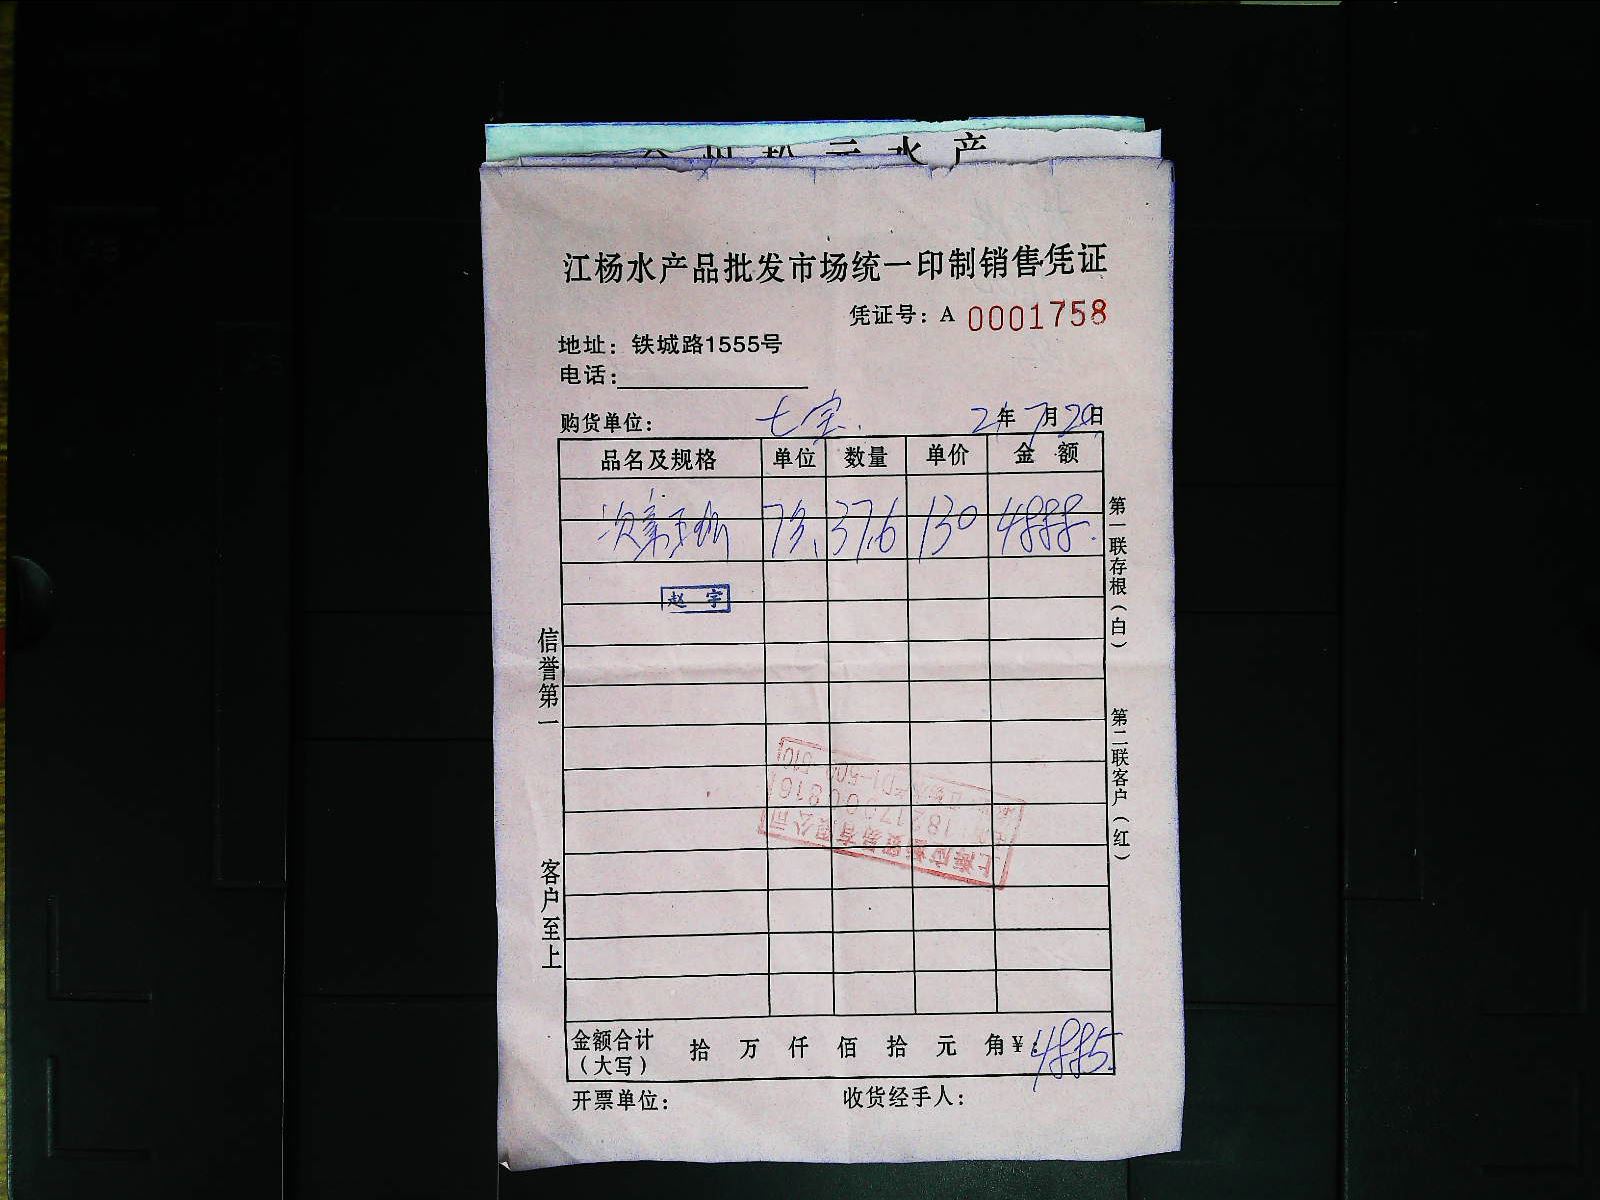 水产
江杨水产品批发市场统一印制销售凭证
凭证号：A 0001758
地址：铁城路1555号
电话：
购货单位： 七宝. 21年7月20日
品名及规格 单位 数量 单价 金 额
37.6 130 4888.
赵 宇
信誉第一
客户至上
第一联存根（白）
第二联客户（红）
上海应 贸易有限公司
金额合计（大写） 拾 万 仟 佰 拾 元 角 ¥：4885.
开票单位： 收货经手人：